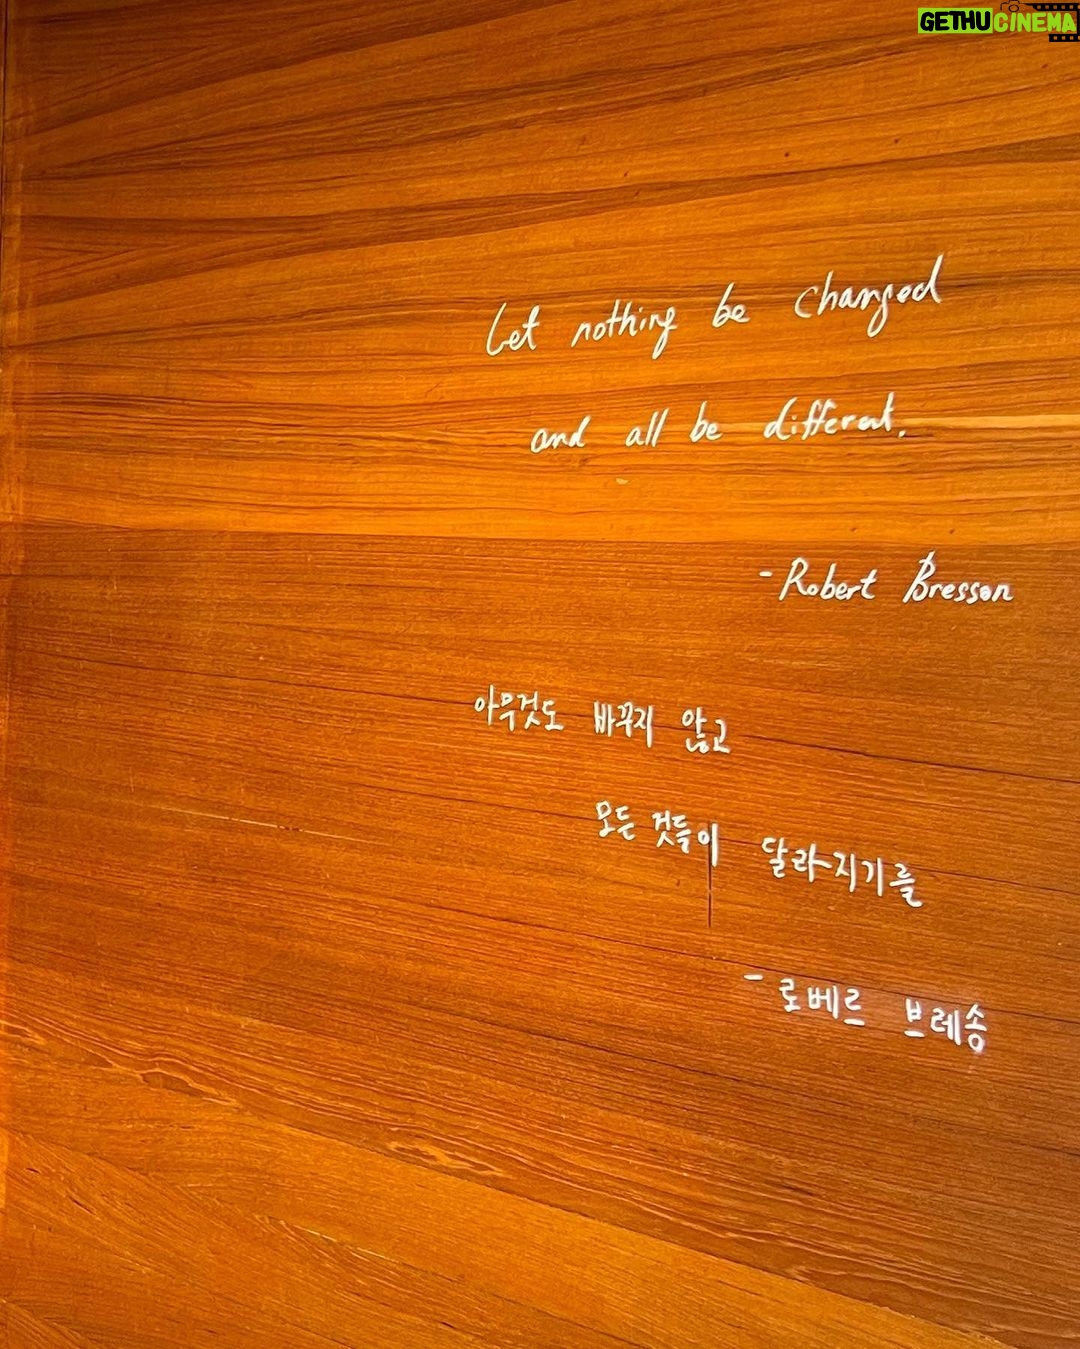 GETHUCINEMA
Let nothing be changed
and all be different.
- Robert Bresson
아무것도 바꾸지 않고
모든 것들이 달라지기를
- 로베르 브레송